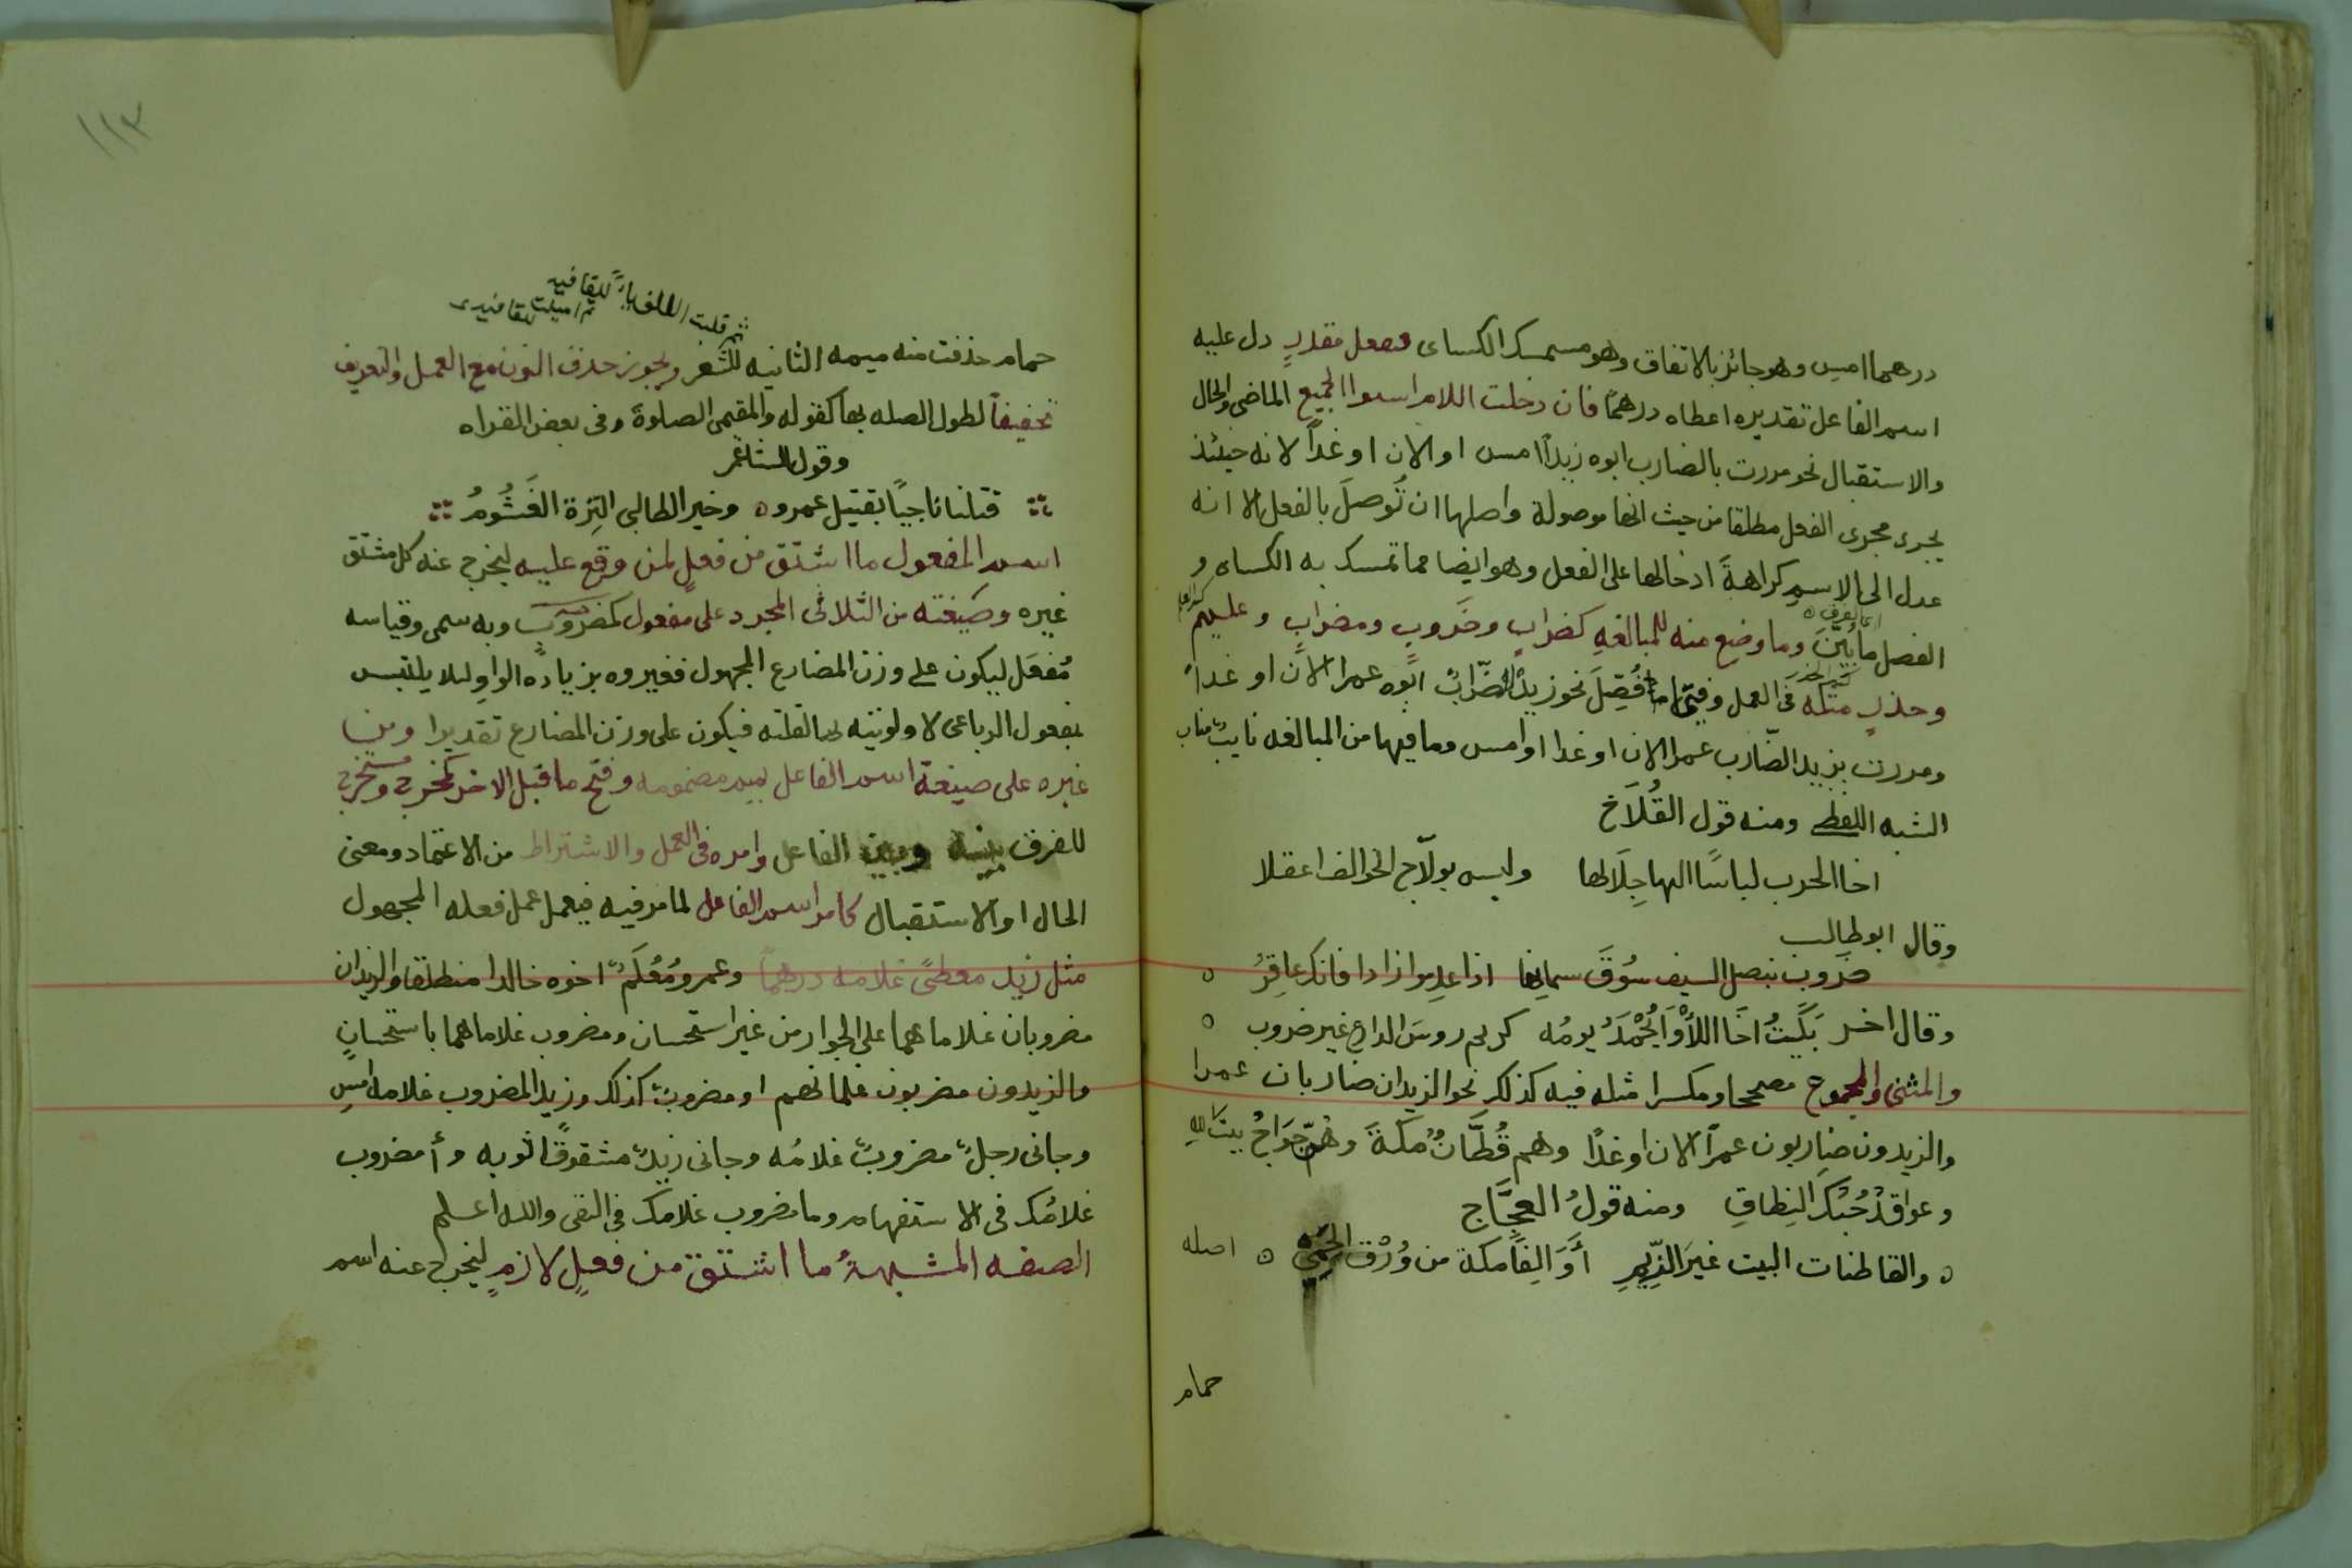 درهما امس وهو جائز بالاتفاق وهو مستمسك الكساى فبفعل مقدر دل عليه
اسم الفاعل تقديره اعطاه درهمًا فان دخلت اللام استوا الجميع الماضى والحال
والاستقبال نحو مررت بالضارب ابوه زيدًا امس او الان او غدًا لانه حينئذ
يجرى مجرى الفعل مطلقا من حيث انها موصولة واصلها ان تُوصلَ بالفعل الا انه
عدل الى الاسم كراهةَ ادخالها على الفعل وهو ايضا مما تمسك به الكساى و
الفصل ما بُيّنَ وما وضع منه للمبالغه كضرابٍ وضَروبٍ ومضرابٍ وعليم
وحذرٍ مثله فى العمل وفيتى ما فُصّل نحو زيدٌ الضرّابُ ابوه عمرا الان او غداً
ومررت بزيد الضّارب عمرا الان او غدا او امس وما فيها من المبالغه نايبٌ مناب
الشبه اللفظى ومنه قول القُلَاخ
اخا الحرب لباسًا اليها جِلَالها وليس بولّاج الخوالف اعقلا
وقال ابو طالب
ضَروب بنصل السيف سُوقَ سمانها اذا عدموا زادا فانك عاقِرُ ٥
وقال اخر بَكَيتُ اخَا اللأْوَا يُحْمَدُ يومُه كريم روسَ الدارع غير ضروب ٥
والمثنى والمجموع مصححا ومكسرا مثله فيه كذلك نحو الزيدان ضاربان عمرا
والزيدون ضاربون عمرًا الان او غدًا وهم قُطّانٌ مكةَ وهُنّ حَوَاجُ بيتَ الله
وعواقدٌ حُبُكَ النِطاقِ ومنه قولُ العجَّاج
٥ والقاطنات البيت غيرَ الرِّيَمِ أَوَالِفًا مكة من وُرْقِ الحَمِى ٥ اصله
حمام
١١٣
ثم قلبت الالف ياءً للقافيه
حمام حذفت منه ميمه الثانيه للشعر ويجوز حذف النون مع العمل والتعريف
تخفيفاً لطول الصله بها كقوله والمقيمى الصلوةَ وفى بعض القراه
وقول الشاعر
قتلنا ناجيًا بقتيل عمرو ٥ وخير الطالبى التِرَة الغَشُومُ
اسم المفعول ما اشتق من فعلٍ لمن وقع عليه ليخرج عنه كل مشتق
غيره وصيغته من الثلاثى المجرد على مفعول كمضروبٍ وبه سمى وقياسه
مُفعَل ليكون على وزن المضارع المجهول فغيروه بزيادة الواو لئلا يلتبس
بمفعول الرباعى لاولويته بها لقلته فيكون على وزن المضارع تقديرا ومن
غيره على صيغة اسم الفاعل بميم مضمومه وفتح ما قبل الاخر كمخرج ومستخرج
للفرق بينه وبين الفاعل وامره فى العمل والاشتراط من الاعتماد ومعنى
الحال او الاستقبال كامر اسم الفاعل لما مر فيه فيعمل عمل فعله المجهول
مثل زيد معطًى غلامه درهماً وعمرو مُعْلَمٌ اخوه خالدا منطلقا والزيدان
مضروبان غلاماهما على الجوار من غير استحسان ومضروب غلاماهما باستحسان
والزيدون مضربون غلمانهم او مضروبٌ كذلك وزيد المضروب غلامه امسِ
وجانى رجلٌ مضروبٌ غلامُه وجانى زيدٌ مشقوقًا ثوبه وأمضروب
غلامُك فى الاستفهام وما مضروب غلامك فى النفى والله اعلم
الصفه المشبهةُ ما اشتق من فعلٍ لازمٍ ليخرج عنه اسم